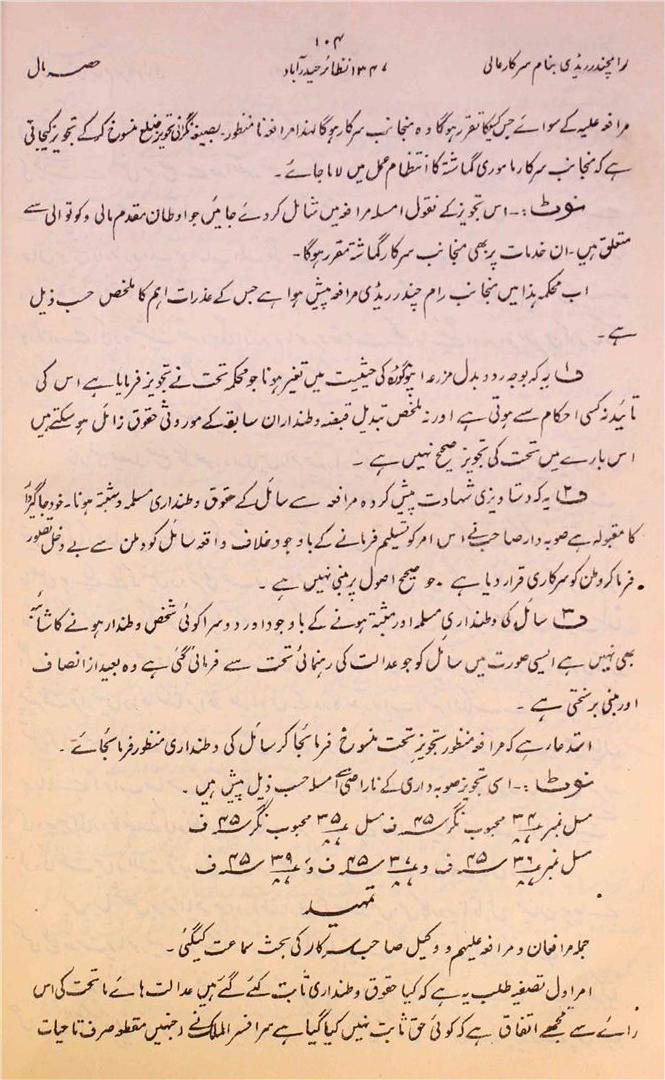 ۱۰۴
رامچندر ریڈی بنام سرکار عالی ۱۳۴۷ نظائر حیدرآباد حصہ مال
مرافعہ علیہ کے سوائے جس کیکا تقرر ہوگا وہ منجانب سرکار ہوگا لہذا مرافعہ نا منظور۔ بصیغہ نگرانی تجویز ضلع منسوخ کر کے تجویز کیجاتی
ہے کہ منجانب سرکار ماموری گماشتہ کا انتظام عمل میں لایا جائے۔
نوٹ:۔ اس تجویز کے نقول امسلہ مرافعہ میں شامل کردئے جائیں جو اوطان مقدم مالی و کوتوالی سے
متعلق ہیں۔ ان خدمات پر بھی منجانب سرکار گماشتہ مقرر ہوگا۔
اب محکمہ ہذا میں منجانب رام چندر ریڈی مرافعہ پیش ہوا ہے جس کے عذرات اہم کا ملخص حسب ذیل
ہے۔
ف۱ یہ کہ بوجہ ردو بدل مزرعہ کی حیثیت میں تغیر ہونا جو محکمہ تحت نے تجویز فرمایا ہے اس کی
تائید نہ کسی احکام سے ہوتی ہے اور نہ ملخص تبدیل قبضہ وطنداران سابقہ کے موروثی حقوق زائل ہو سکتے ہیں
اس بارے میں تحت کی تجویز صحیح نہیں ہے۔
ف۲ یہ کہ دستاویزی شہادت پیش کردہ مرافعہ سے سائل کے حقوق وطنداری مسلمہ و مثبتہ ہونا۔ خود جاگیردار
کا مقبولہ ہے صوبہ دار صاحب نے اس امر کو تسلیم فرمانے کے باوجود خلاف واقعہ سائل کو وطن سے بے دخل تصور
فرما کر وطن کو سرکاری قرار دیا ہے۔ جو صحیح اصول پر مبنی نہیں ہے۔
ف۳ سائل کی وطنداری مسلمہ اور مثبتہ ہونے کے باوجود اور دوسرا کوئی شخص وطندار ہونے کا شائبہ
بھی نہیں ہے ایسی صورت میں سائل کو جو عدالت کی رہنمائی تحت سے فرمائی گئی ہے وہ بعید از انصاف
اور مبنی بر سختی ہے۔
استدعا رہے کہ مرافعہ منظور تجویز تحت منسوخ فرمائجا کر سائل کی وطنداری منظور فرمائجائے۔
نوٹ:۔ اسی تجویز صوبہ داری کے ناراضی سے امسلہ حسب ذیل پیش ہیں۔
مسل نمبر ۳۴ محبوب نگر ۴۵ ف مسل ۳۵ محبوب نگر ۴۵ ف
مسل نمبر ۳۶ ۴۵ ف و ۳۷ ۴۵ ف و ۳۹ ۴۵ ف
تمہید
جملہ مرافعان و مرافعہ علیہم و وکیل صاحب سرکار کی بحث سماعت کیگئی۔
امر اول تصفیہ طلب یہ ہے کہ کیا حقوق وطنداری ثابت کئے گئے ہیں عدالت ہائے ماتحت کی اس
رائے سے مجھے اتفاق ہے کہ کوئی حق ثابت نہیں کیا گیا ہے سر افسر الملک نے جنہیں مقطعہ صرف تا حیات